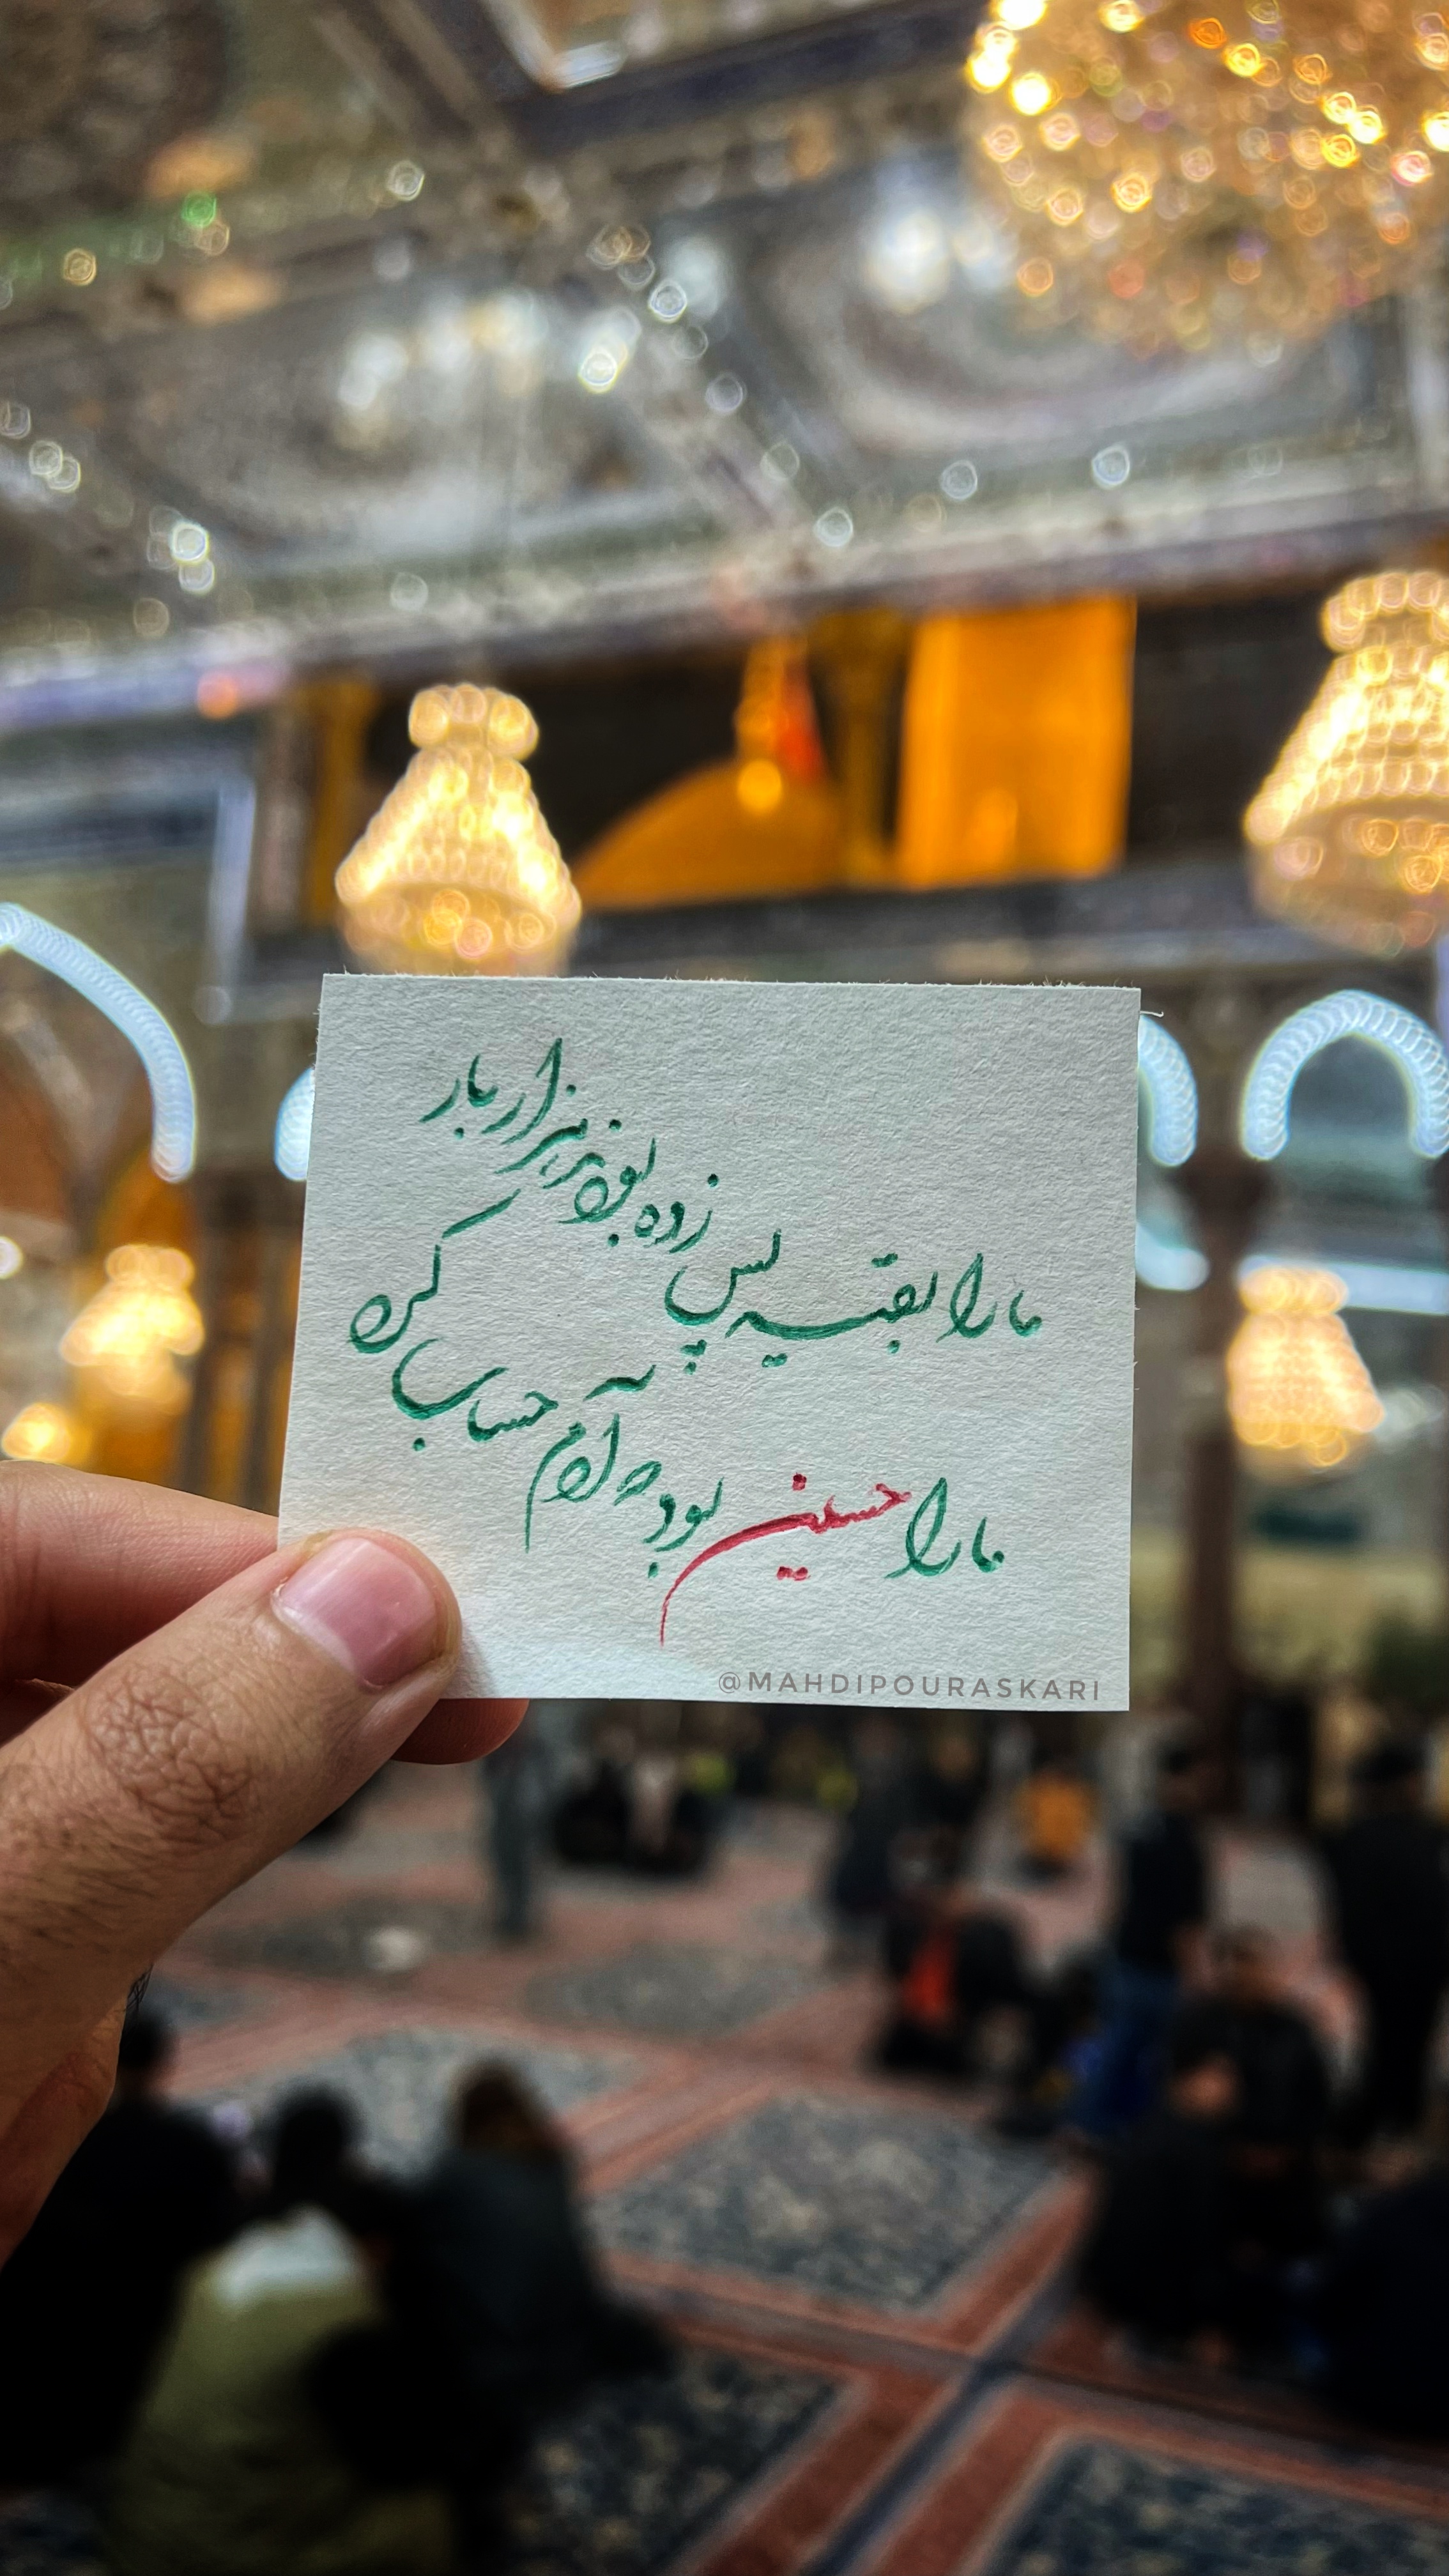 ما را بقیه پس زده بودن هزار بار
ما را حسین بود که آدم حساب کرد
@MAHDIPOURASKARI